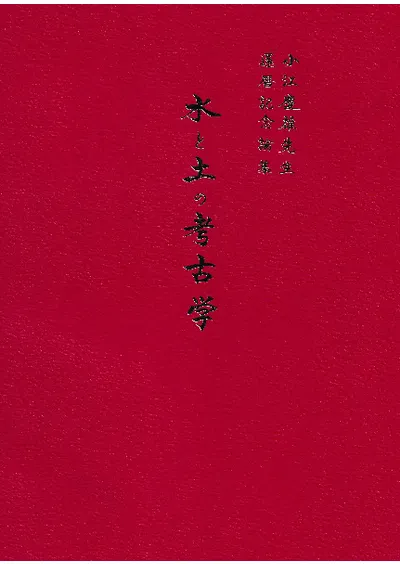 小江慶雄先生
還暦記念論集
水と土の考古学